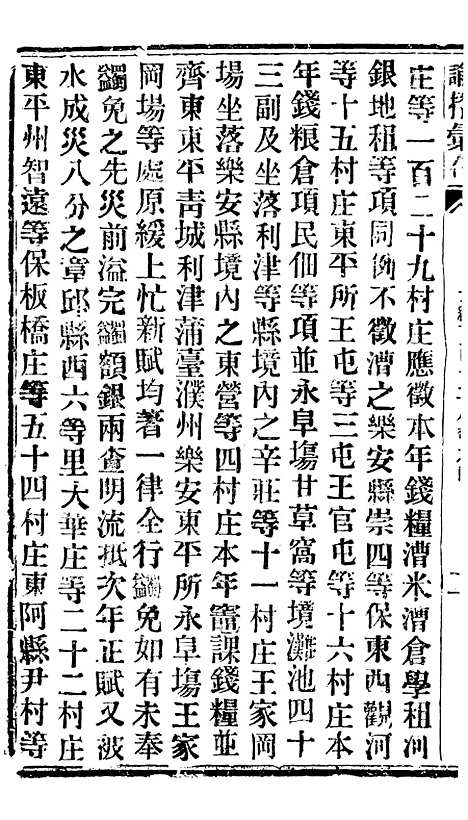 諭摺彙存
庄等一百二十九村庄應徵本年錢糧漕米漕倉學租河
銀地租等項同倒不徵漕之樂安縣崇四等保東西觀河
等十五村庄東平所王屯等三屯王官屯等十六村庄本
年錢粮倉項民佃等項並永阜塲甘草窩等境灘池四十
三副及坐落利津等縣境內之辛莊等十一村庄王家岡
場坐落樂安縣境內之東營等四村庄本年竈課錢糧並
齊東東平靑城利津蒲臺濮州樂安東平所永阜塲王家
岡場等處原緩上忙新賦均著一律全行蠲免如有未奉
蠲免之先災前溢完蠲額銀兩查明流抵次年正賦又被
水成災八分之章邱縣西六等里大華庄等二十二村庄
東平州智遠等保板橋庄等五十四村庄東阿縣尹村等